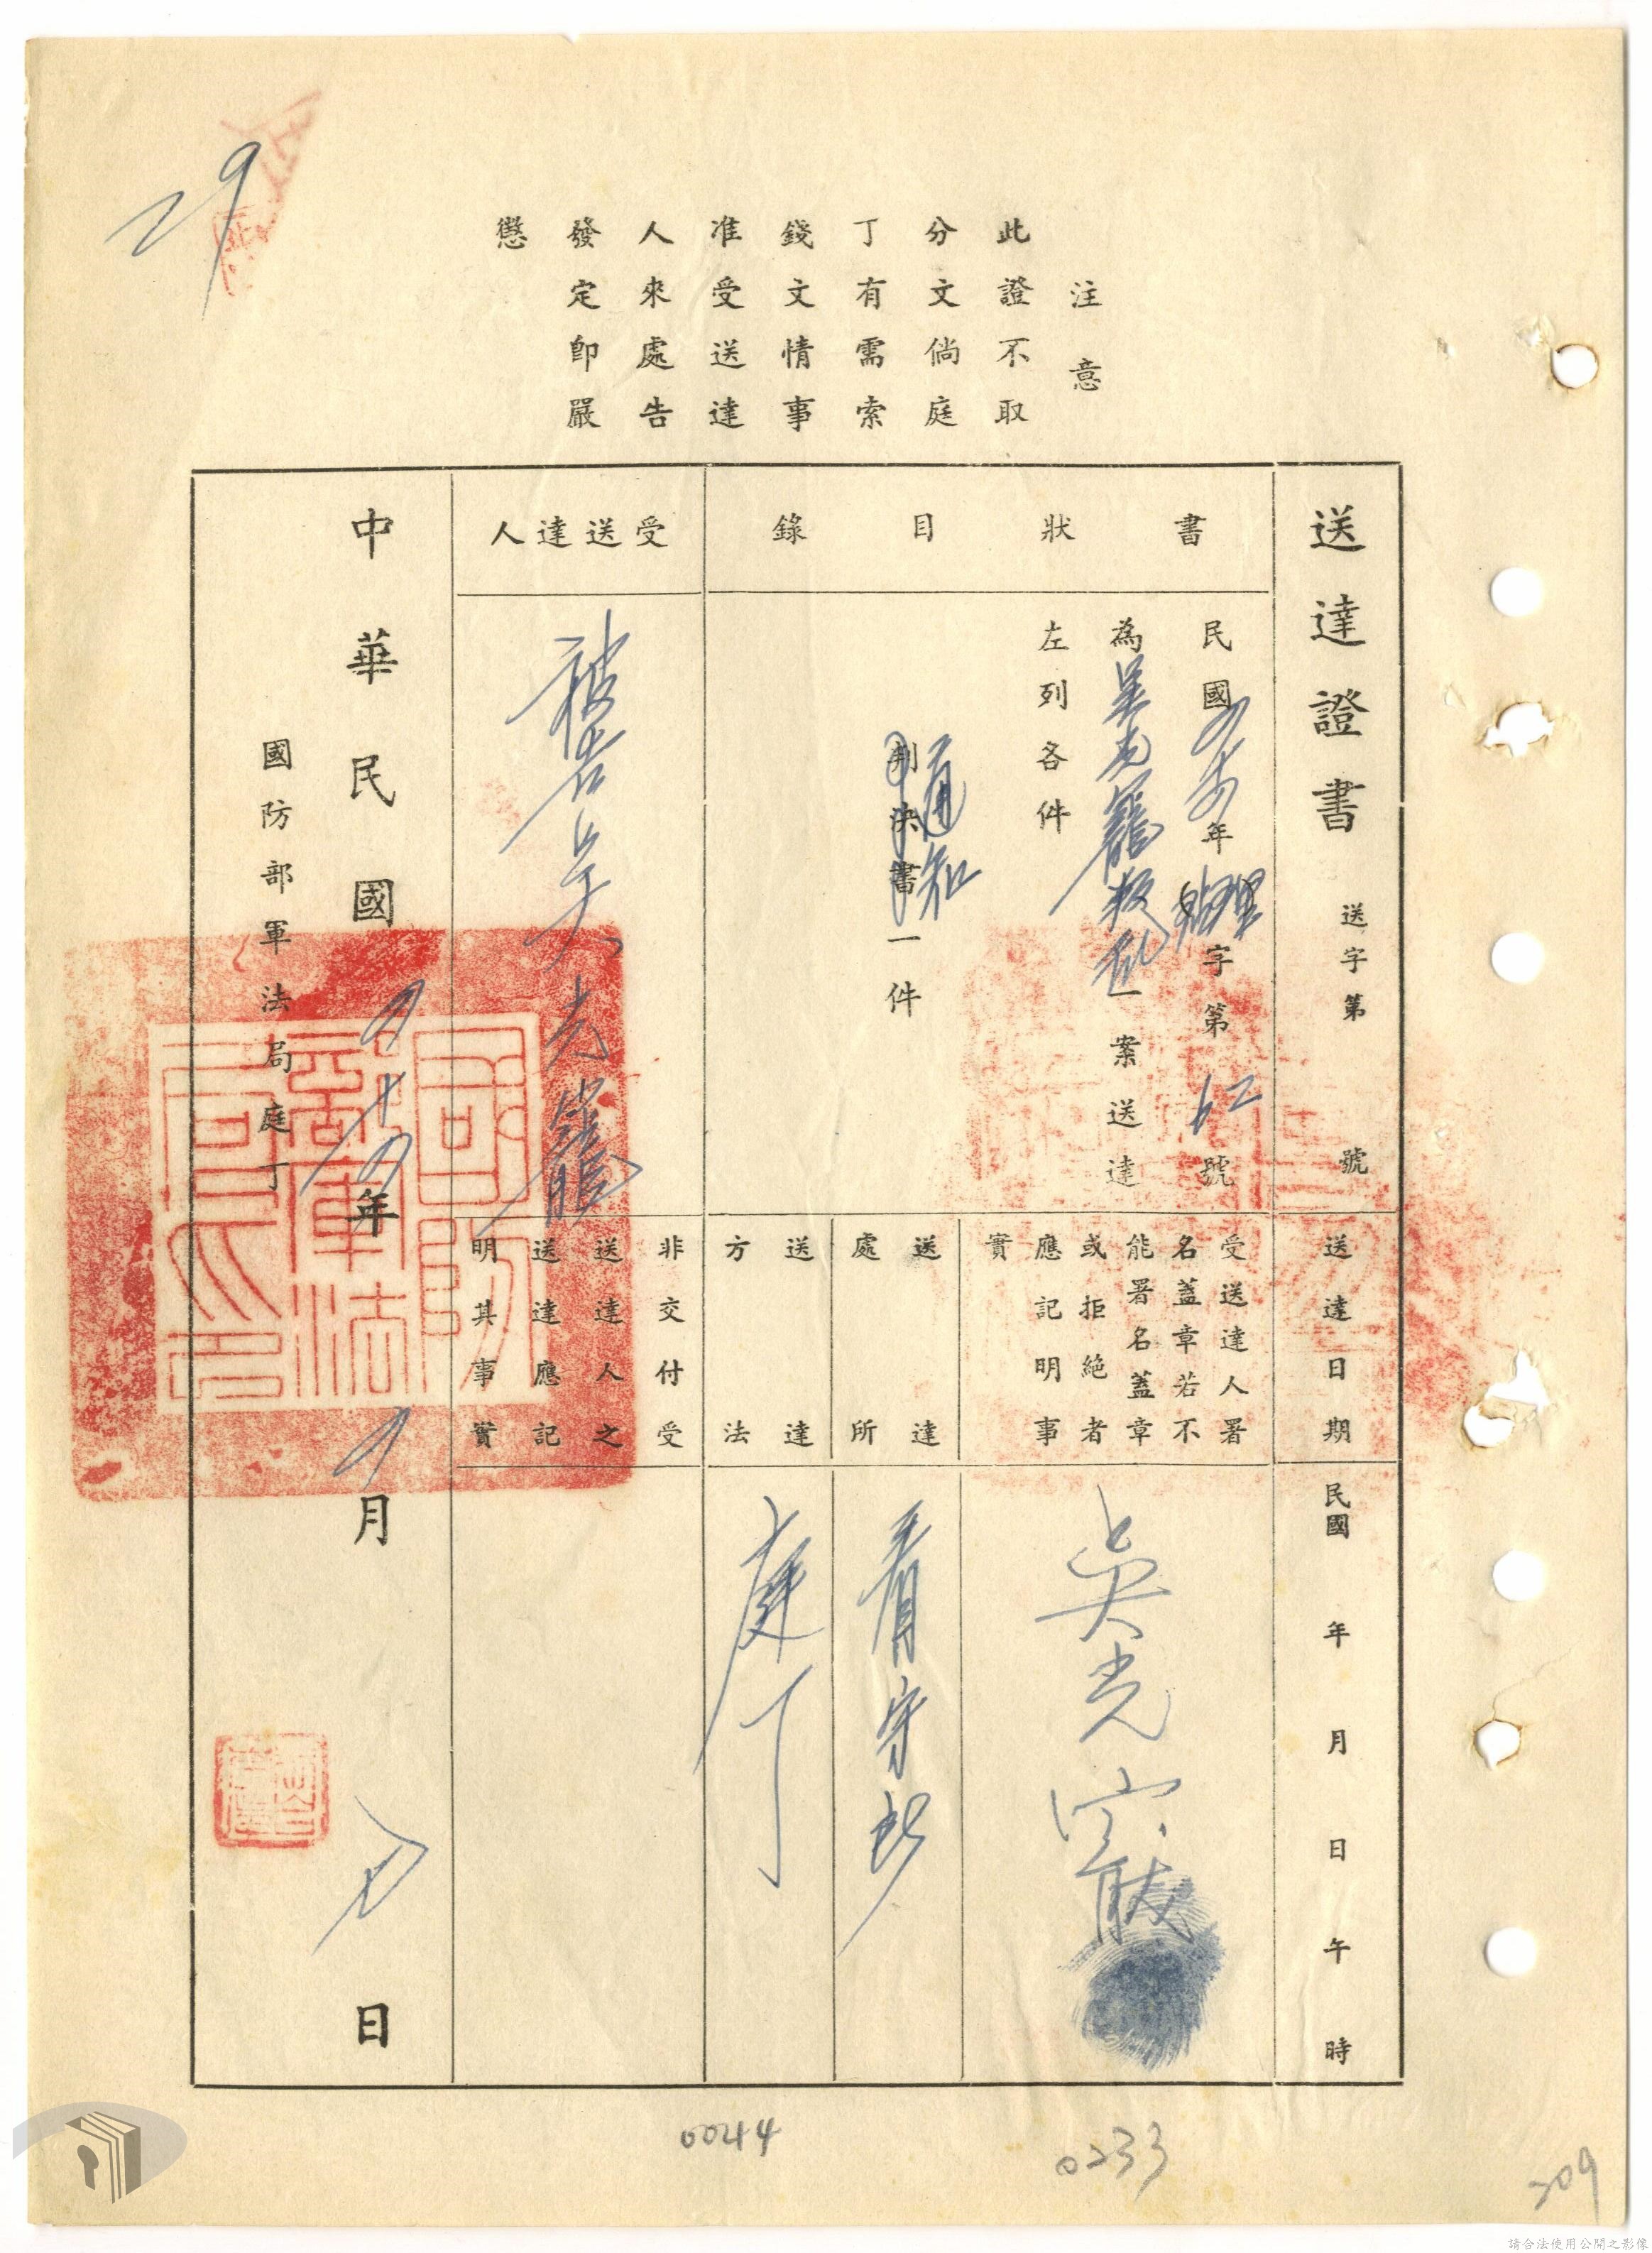 注意
此證不取
分文倘庭
丁有需索
錢文情事
准受送達
人來處告
發定即嚴
懲
29
送達證書
送字第 號
送達日期
民國 年 月 日 午 時
書狀目錄
民國 年 字第 62 號
為吳光 叛乱一案送達
左列各件
判決書一件
通知
受送達人署
名蓋章若不
能署名蓋章
或拒絶者
應記明事
實
吳光
送達
處所
看守所
送達
方法
庭丁
受送達人
被告吳光
非交付受
送達人之
送達應記
明其事實
中華民國四十四年 月 日
國防部軍法局庭丁
國防部軍法局印
0044
0233
209
請合法使用公開之影像